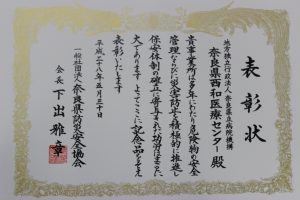 表彰状
地方独立行政法人 奈良県立病院機構
奈良県西和医療センター 殿
貴事業所は多年にわたり危険物の安全
管理ならびに災害防止を積極的に推進し
保安体制の確立に寄与された功績はまことに
大であります よってここに記念品をそえ
表彰いたします
平成二十八年五月三十日
一般社団法人 奈良県防災安全協会
会長 下出雅章